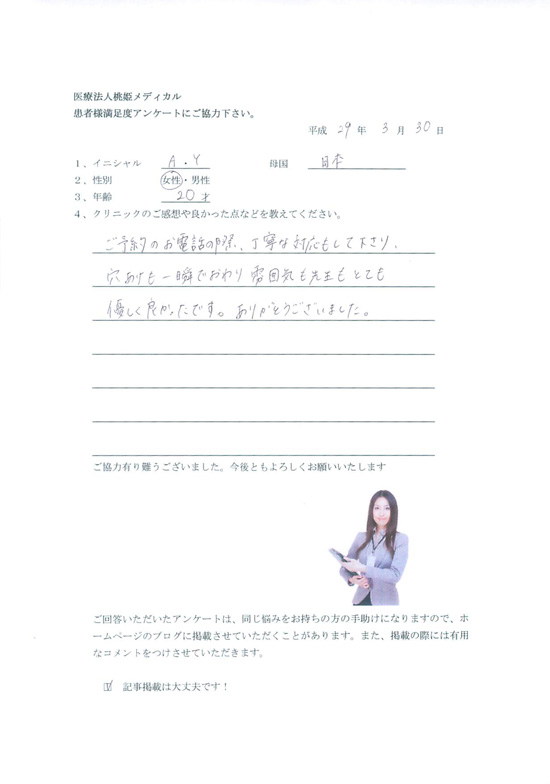 医療法人桃姫メディカル
患者様満足度アンケートにご協力下さい。
平成 29 年 3 月 30 日
1、イニシャル A・Y 母国 日本
2、性別 女性・男性
3、年齢 20 才
4、クリニックのご感想や良かった点などを教えてください。
ご予約のお電話の際、丁寧な対応もして下さり、
穴あけも一瞬でおわり雰囲気も先生もとても
優しく良かったです。ありがとうございました。
ご協力有り難うございました。今後ともよろしくお願いいたします
ご回答いただいたアンケートは、同じ悩みをお持ちの方の手助けになりますので、ホ
ームページのブログに掲載させていただくことがあります。また、掲載の際には有用
なコメントをつけさせていただきます。
☑ 記事掲載は大丈夫です！